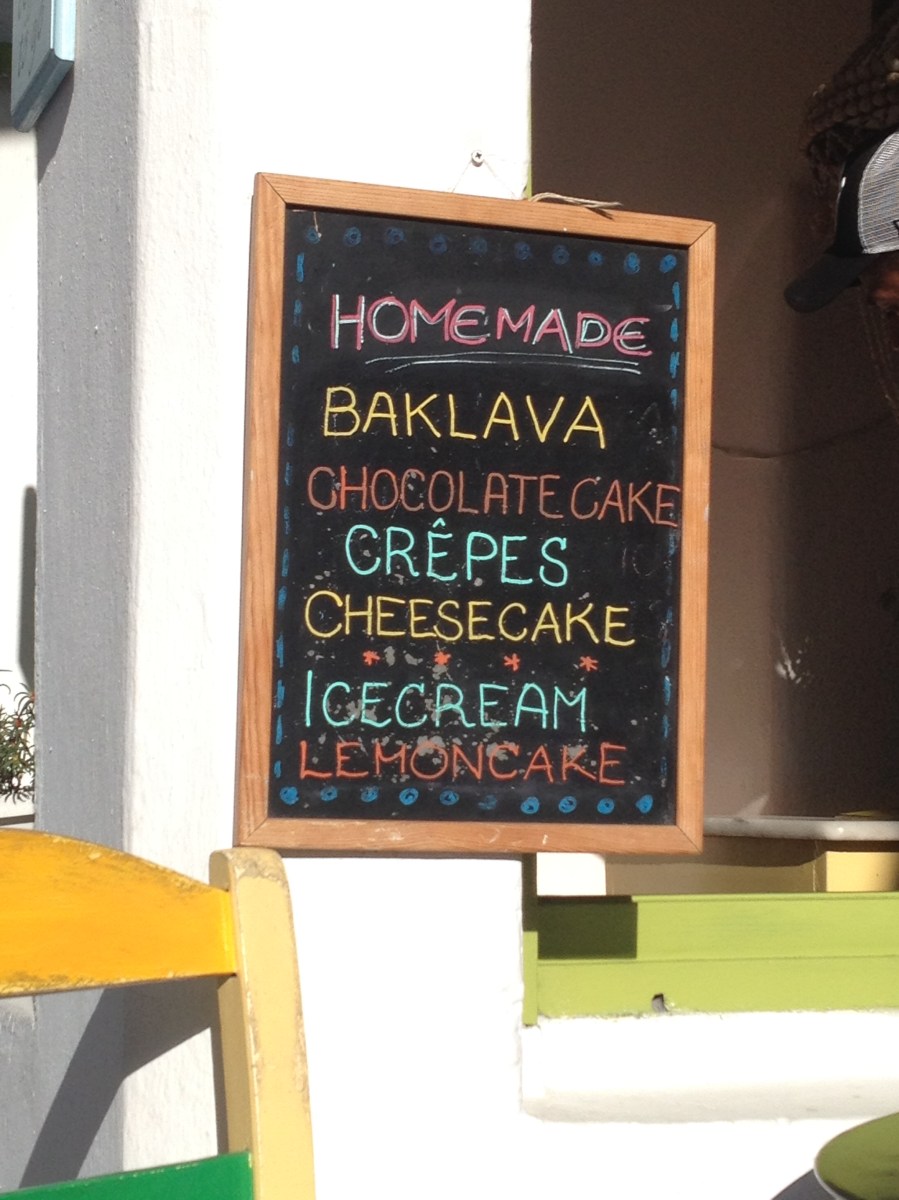 HOMEMADE
BAKLAVA
CHOCOLATE CAKE
CRÊPES
CHEESECAKE
* * * *
ICECREAM
LEMONCAKE